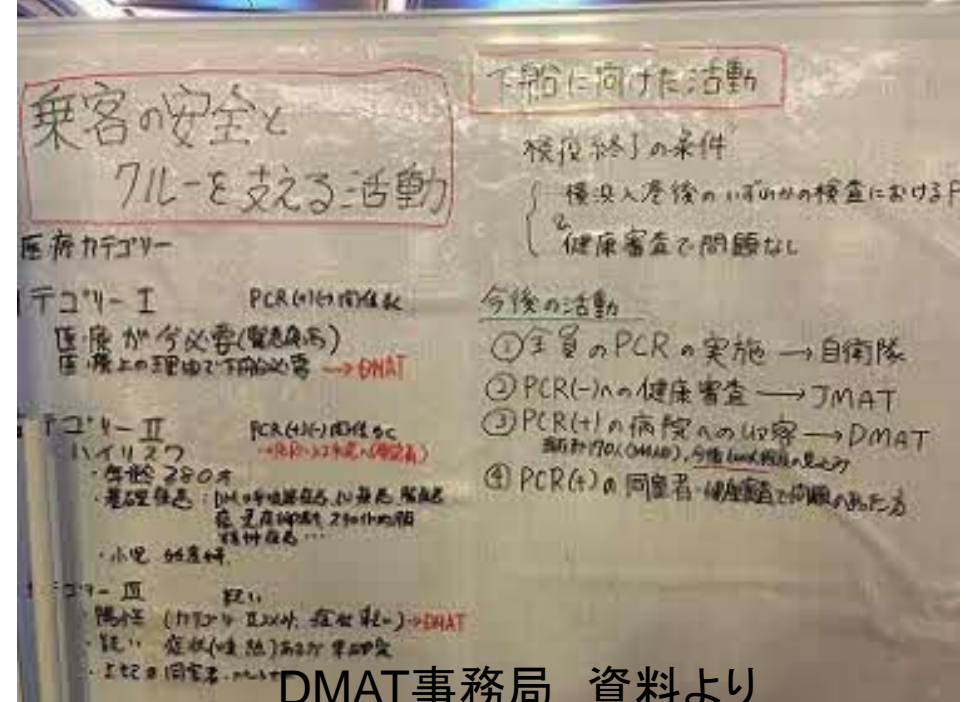 乗客の安全と
クルーを支える活動
医療カテゴリー
テゴリーⅠ PCR(+)(-)関係なく
医療が今必要(緊急疾病)
医療上の理由で下船必要 → DMAT
テゴリーⅡ PCR(+)(-)関係なく
ハイリスク
・年齢≧80才
・基礎疾患:DM
・小児 妊産婦
テゴリー Ⅲ 疑い
・陽性 (カテゴリーⅡ以外, 症状軽い)→DMAT
・疑い 症状(咳 熱)あるが
同室者
下船に向けた活動
検疫終了の条件
横浜入港後のいずれかの検査におけるP
&
健康審査で問題なし
今後の活動
①全員のPCRの実施 → 自衛隊
②PCR(-)への健康審査 → JMAT
③PCR(+)の病院への収容 → DMAT
④PCR(+)の同室者・健康審査で問題のあった方
DMAT事務局 資料より